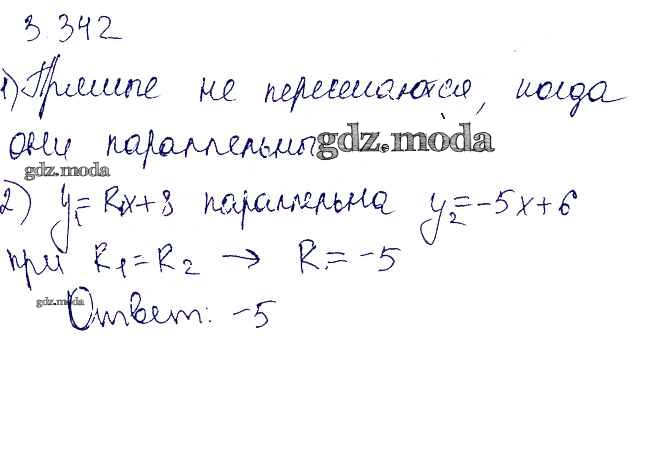 3.342
1) Прямые не пересекаются, когда
они параллельны gdz.moda
gdz.moda
2) y₁=kx+8 параллельна y₂=-5x+6
при k₁=k₂ → k=-5
gdz.moda
Ответ: -5